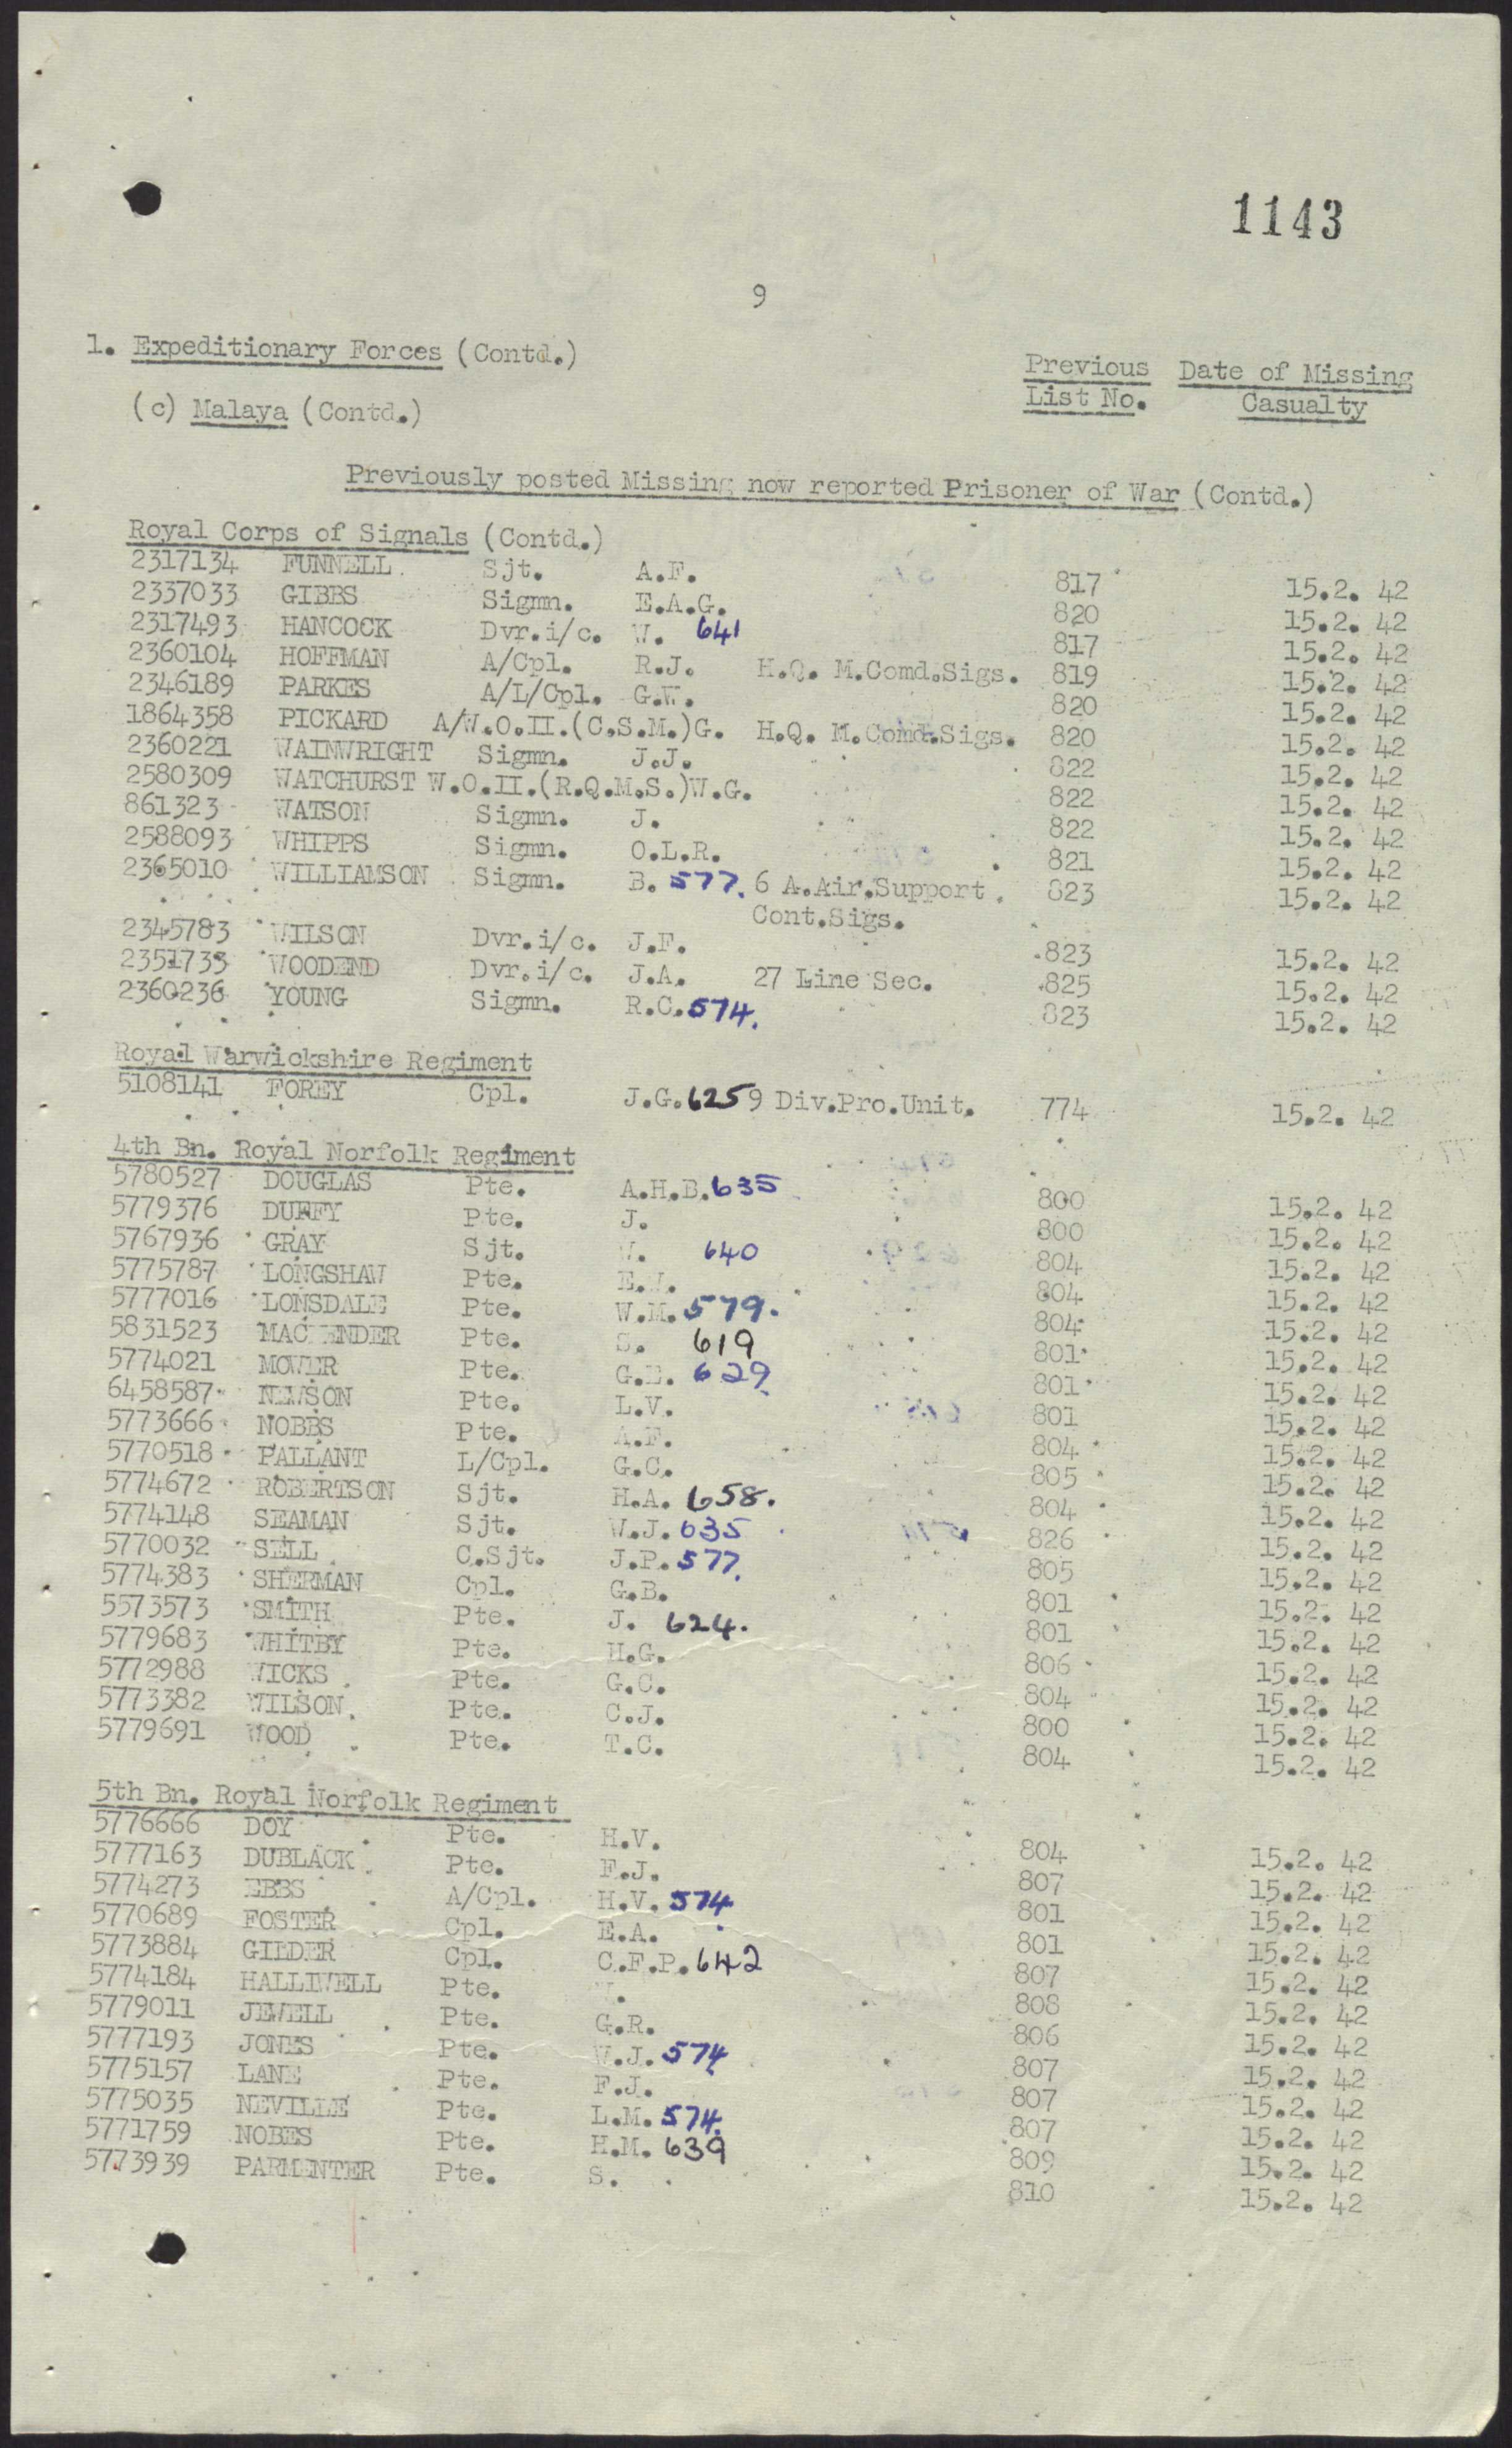 1143
9
1. Expeditionary Forces (Contd.)
Previous Date of Missing
List No. Casualty
(c) Malaya (Contd.)
Previously posted Missing now reported Prisoner of War (Contd.)
Royal Corps of Signals (Contd.)
2317134 FUNNELL Sjt. A.F. 817 15.2. 42
2337033 GIBBS Sigmn. E.A.G. 820 15.2. 42
2317493 HANCOCK Dvr.i/c. W. 641 817 15.2. 42
2360104 HOFFMAN A/Cpl. R.J. H.Q. M.Comd.Sigs. 819 15.2. 42
2346189 PARKES A/L/Cpl. G.W. 820 15.2. 42
1864358 PICKARD A/W.O.II.(C.S.M.)G. H.Q. M.Comd.Sigs. 820 15.2. 42
2360221 WAINWRIGHT Sigmn. J.J. 822 15.2. 42
2580309 WATCHURST W.O.II.(R.Q.M.S.)W.G. 822 15.2. 42
861323 WATSON Sigmn. J. 822 15.2. 42
2588093 WHIPPS Sigmn. O.L.R. 821 15.2. 42
2365010 WILLIAMSON Sigmn. B. 577. 6 A.Air.Support 823 15.2. 42
Cont.Sigs.
2345783 WILSON Dvr.i/c. J.F. 823 15.2. 42
2351733 WOODEND Dvr.i/c. J.A. 27 Line Sec. 825 15.2. 42
2360236 YOUNG Sigmn. R.C. 574. 823 15.2. 42
Royal Warwickshire Regiment
5108141 FOREY Cpl. J.G. 625 9 Div.Pro.Unit. 774 15.2. 42
4th Bn. Royal Norfolk Regiment
5780527 DOUGLAS Pte. A.H.B. 635 800 15.2. 42
5779376 DUFFY Pte. J. 800 15.2. 42
5767936 GRAY Sjt. W. 640 804 15.2. 42
5775787 LONGSHAW Pte. E.W. 804 15.2. 42
5777016 LONSDALE Pte. W.M. 579. 804 15.2. 42
5831523 Pte. S. 619 801 15.2. 42
5774021 MOWER Pte. G.E. 629. 801 15.2. 42
6458587 NEWSON Pte. L.V. 801 15.2. 42
5773666 NOBBS Pte. A.F. 804 15.2. 42
5770518 PALLANT L/Cpl. G.C. 805 15.2. 42
5774672 ROBERTSON Sjt. H.A. 658. 804 15.2. 42
5774148 SEAMAN Sjt. W.J. 635 826 15.2. 42
5770032 SELL C.Sjt. J.P. 577. 805 15.2. 42
5774383 SHERMAN Cpl. G.B. 801 15.2. 42
5573573 SMITH Pte. J. 624. 801 15.2. 42
5779683 WHITBY Pte. H.G. 806 15.2. 42
5772988 WICKS Pte. G.C. 804 15.2. 42
5773382 WILSON Pte. C.J. 800 15.2. 42
5779691 WOOD Pte. T.C. 804 15.2. 42
5th Bn. Royal Norfolk Regiment
5776666 DOY Pte. H.V. 804 15.2. 42
5777163 DUBLACK Pte. F.J. 807 15.2. 42
5774273 EBBS A/Cpl. H.V. 574. 801 15.2. 42
5770689 FOSTER Cpl. E.A. 801 15.2. 42
5773884 GILDER Cpl. C.F.P. 642 807 15.2. 42
5774184 HALLIWELL Pte. 808 15.2. 42
5779011 JEWELL Pte. G.R. 806 15.2. 42
5777193 JONES Pte. W.J. 574. 807 15.2. 42
5775157 LANE Pte. F.J. 807 15.2. 42
5775035 NEVILLE Pte. L.M. 574. 807 15.2. 42
5771759 NOBES Pte. H.M. 639 809 15.2. 42
5773939 PARMENTER Pte. S. 810 15.2. 42